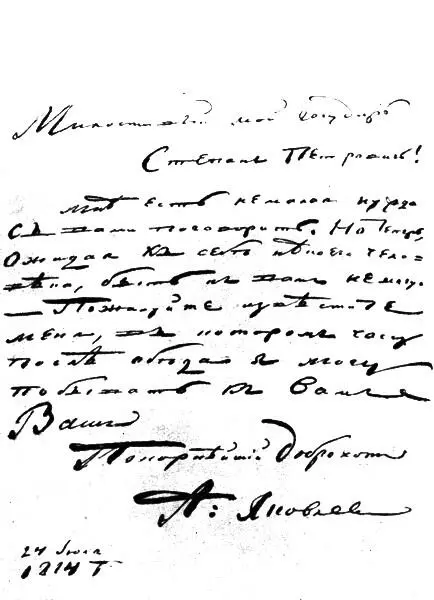 Милостивый мой государь
Степанъ Петровичь!
Мнѣ есть не малая нужда
съ вами поговорить. Но теперь,
Ожидая къ себѣ нѣкоего чело-
вѣка, быть къ вамъ не могу
— Пожалуйте извѣстите
меня, въ которомъ часу
послѣ обѣда я могу
побывать къ Вамъ
Вашъ
Покорнѣйший доброхотъ
А: Яковлев
24 Июля
1814 Г